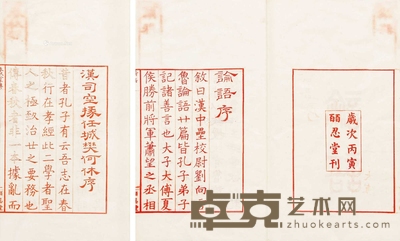 歲次丙寅
皕忍堂刊
論語序
敘曰漢中壘校尉劉向言
魯論語廿篇皆孔子弟子
記諸善言也大子大傅夏
侯勝前將軍蕭望之丞相
漢司空掾任城樊何休序
昔者孔子有云吾志在春
秋行在孝經此二學者聖
人之極致治世之要務也
傳春秋者非一本據亂而
卓克艺术网